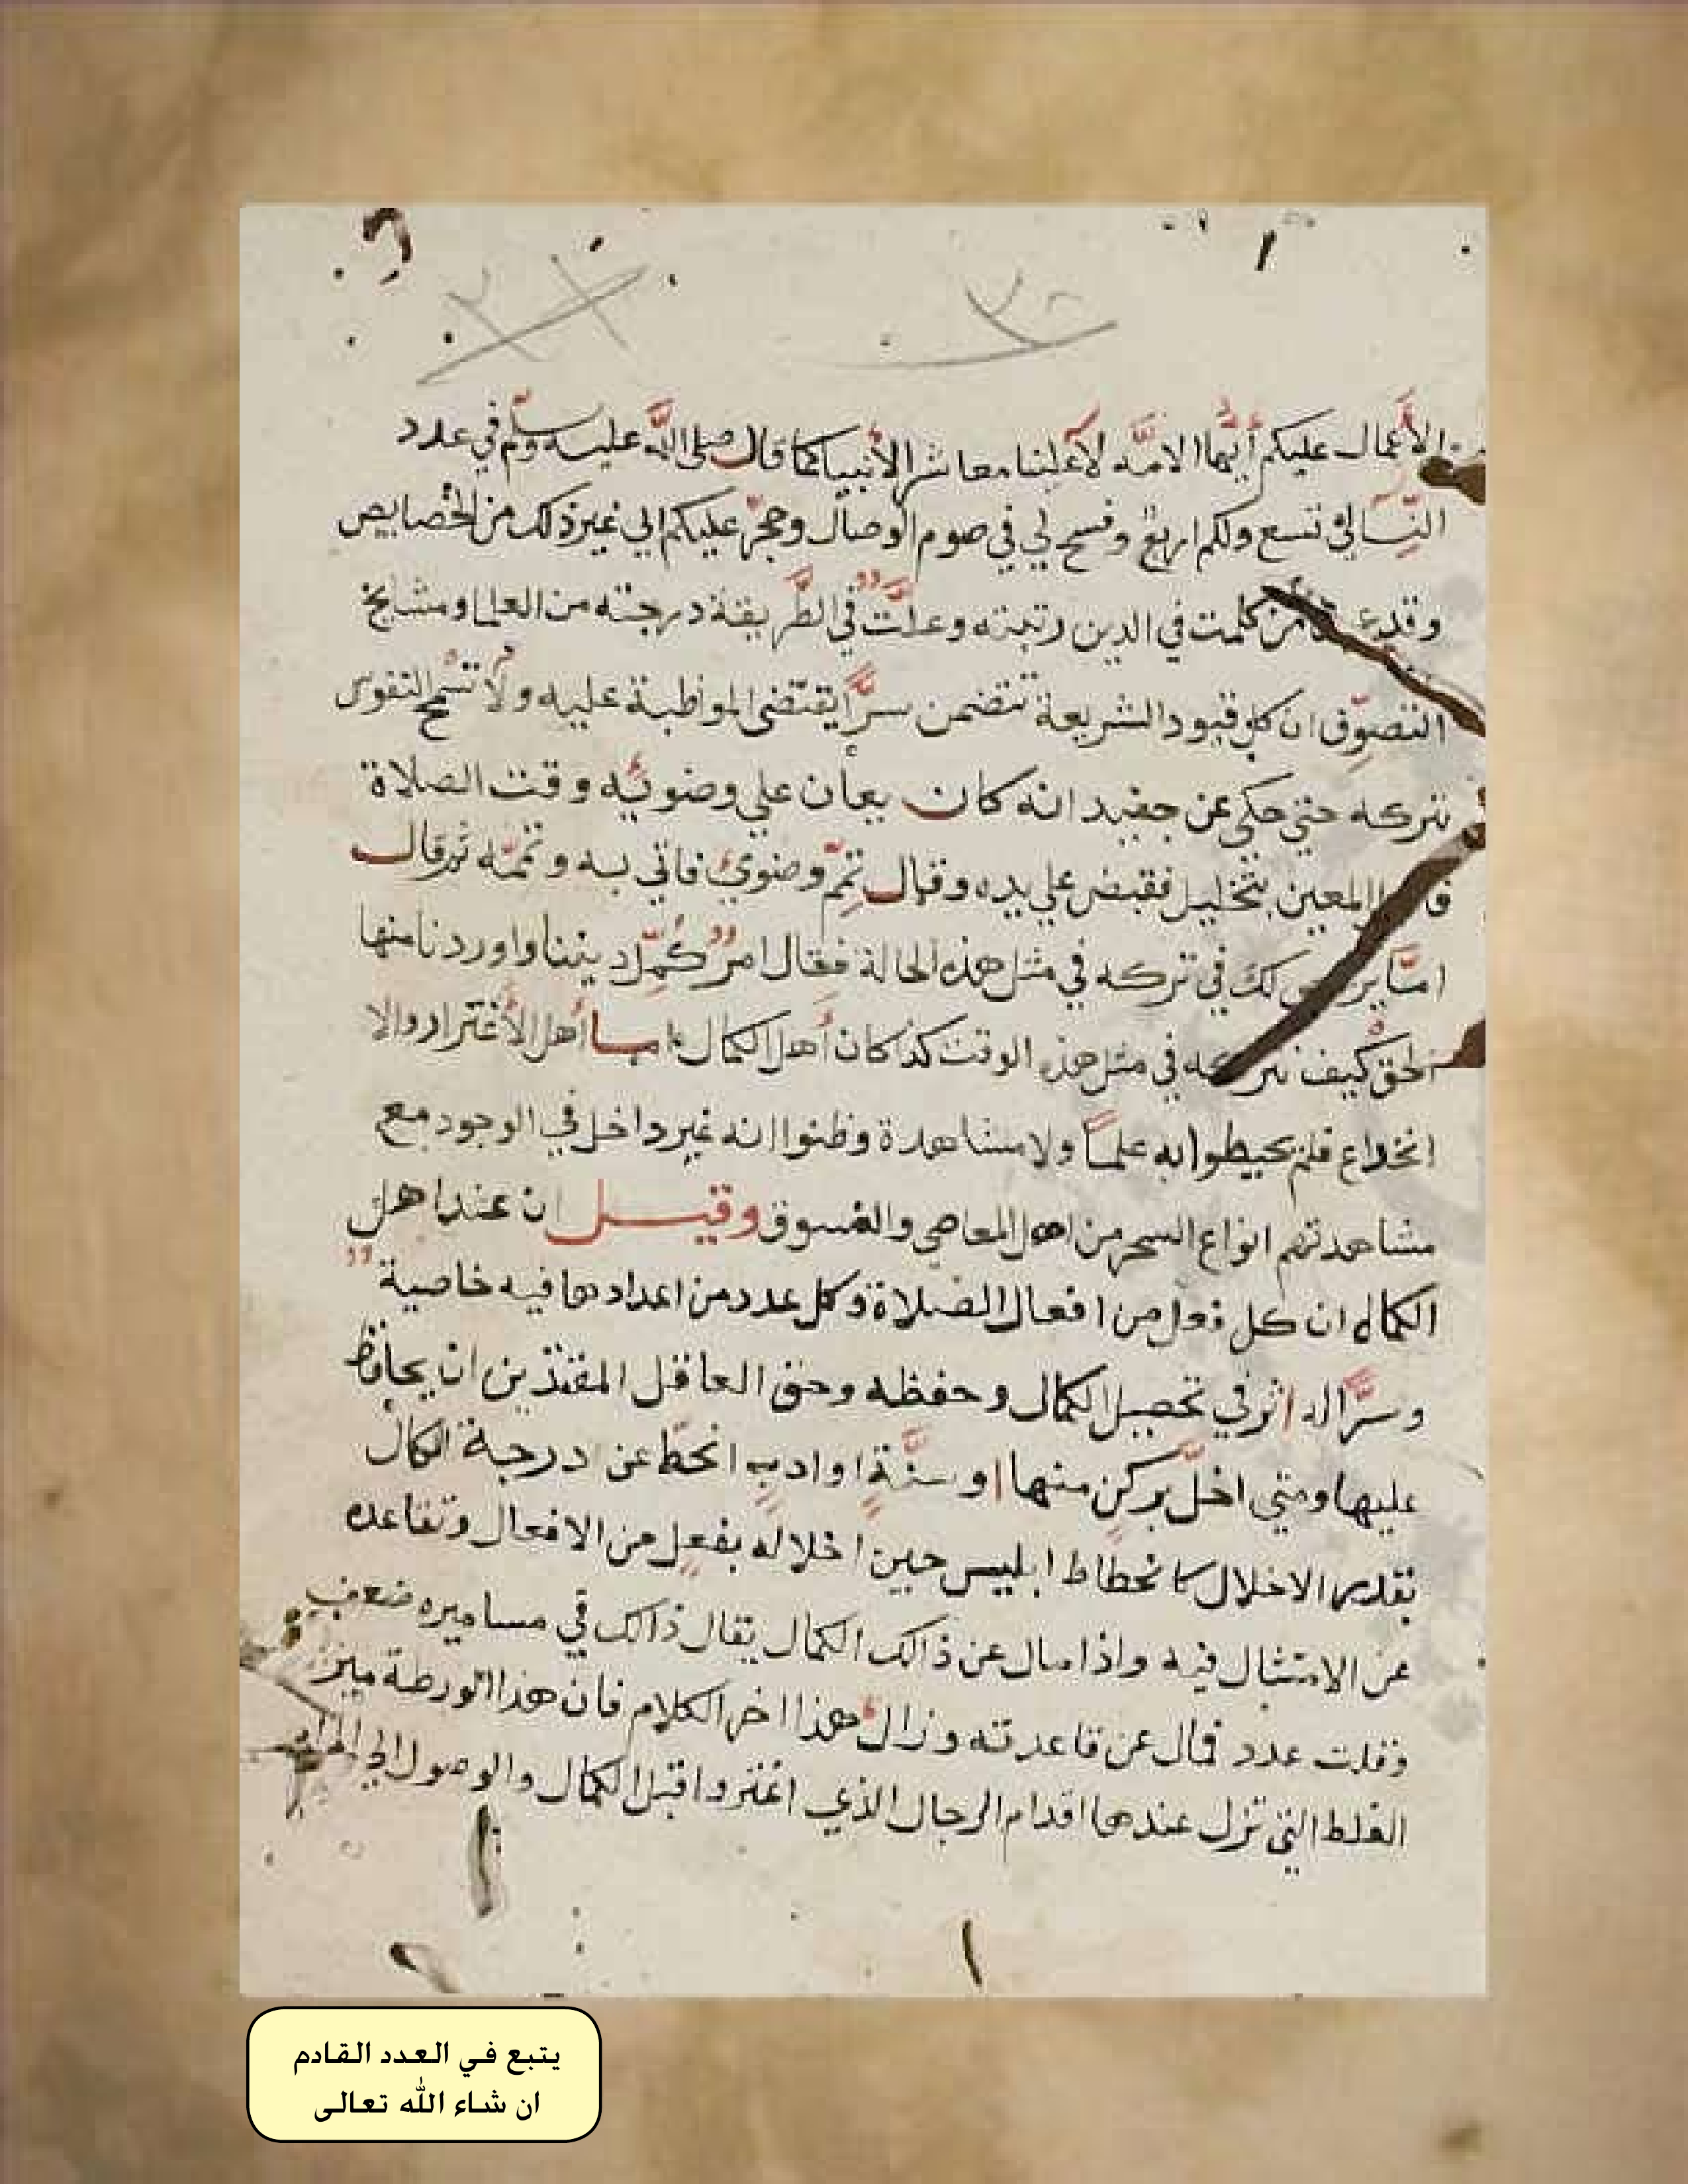 الأَعمال عليكم أيّها الامّه لاَ علينا معاشر الأنبيا كما قال صلى اللَّه عليه وسلّم في عدد
النِّسَا لي تسع ولكم اربع وفسح لي في صوم الوصال وحجّر عليكم الي غير ذلك من الخصايص
وقد من كلمت في الدين رتبته وعلَّت في الطَّريقة درجته من العلما ومشايخ
التصوّف ان كل قيود الشريعة تتضمن سرًّا يقتضى المواظبة عليه ولا تسمح النفوس
بتركه حتي حكي عن جنيد انه كان يعان علي وضوئه وقت الصلاة
المعين بتخليل فقبض علي يده وقال تمّم وضوئ فاتي به وتممّه ثم قال
امّا لك في تركه في مثل هذه الحالة فقال امر كُمِّل ديننا واوردنا منها
الحق كيف في مثل هذه الوقت كذ كان أهل الكمال اما أهل الأغترار والا
انخداع فلم يحيطوا به علماً ولا مشاهدة وظنوا انه غير داخل في الوجود مع
مشاهدتهم انواع السحر من اهل المعاصي والفسوق وقيل ان عند اهل
الكمال ان كل فعل من افعال الصلاة وكل عدد من اعدادها فيه خاصية
وسرًّا له اثر في تحصيل الكمال وحفظه وحق العاقل المقتذين ان يحافظ
عليها ومتي اخلّ بركن منها او سنَّةٍ او ادبٍ انحطّ عن درجة الكمال
بقدر الاخلال كانحطاط ابليس حين اخلاله بفعلٍ من الافعال وتقاعده
عن الامتثال فيه واذا مال عن ذالك الكمال يقال ذالك في مساميره ضعف
وفلت عدد فمال عن قاعدته وزال هذا اخر الكلام فان هذا الورطة ميز
الغلط التي تزل عندها اقدام الرجال الذي اغتروا قبل الكمال والوصول الي
يتبع في العدد القادم
ان شاء الله تعالى